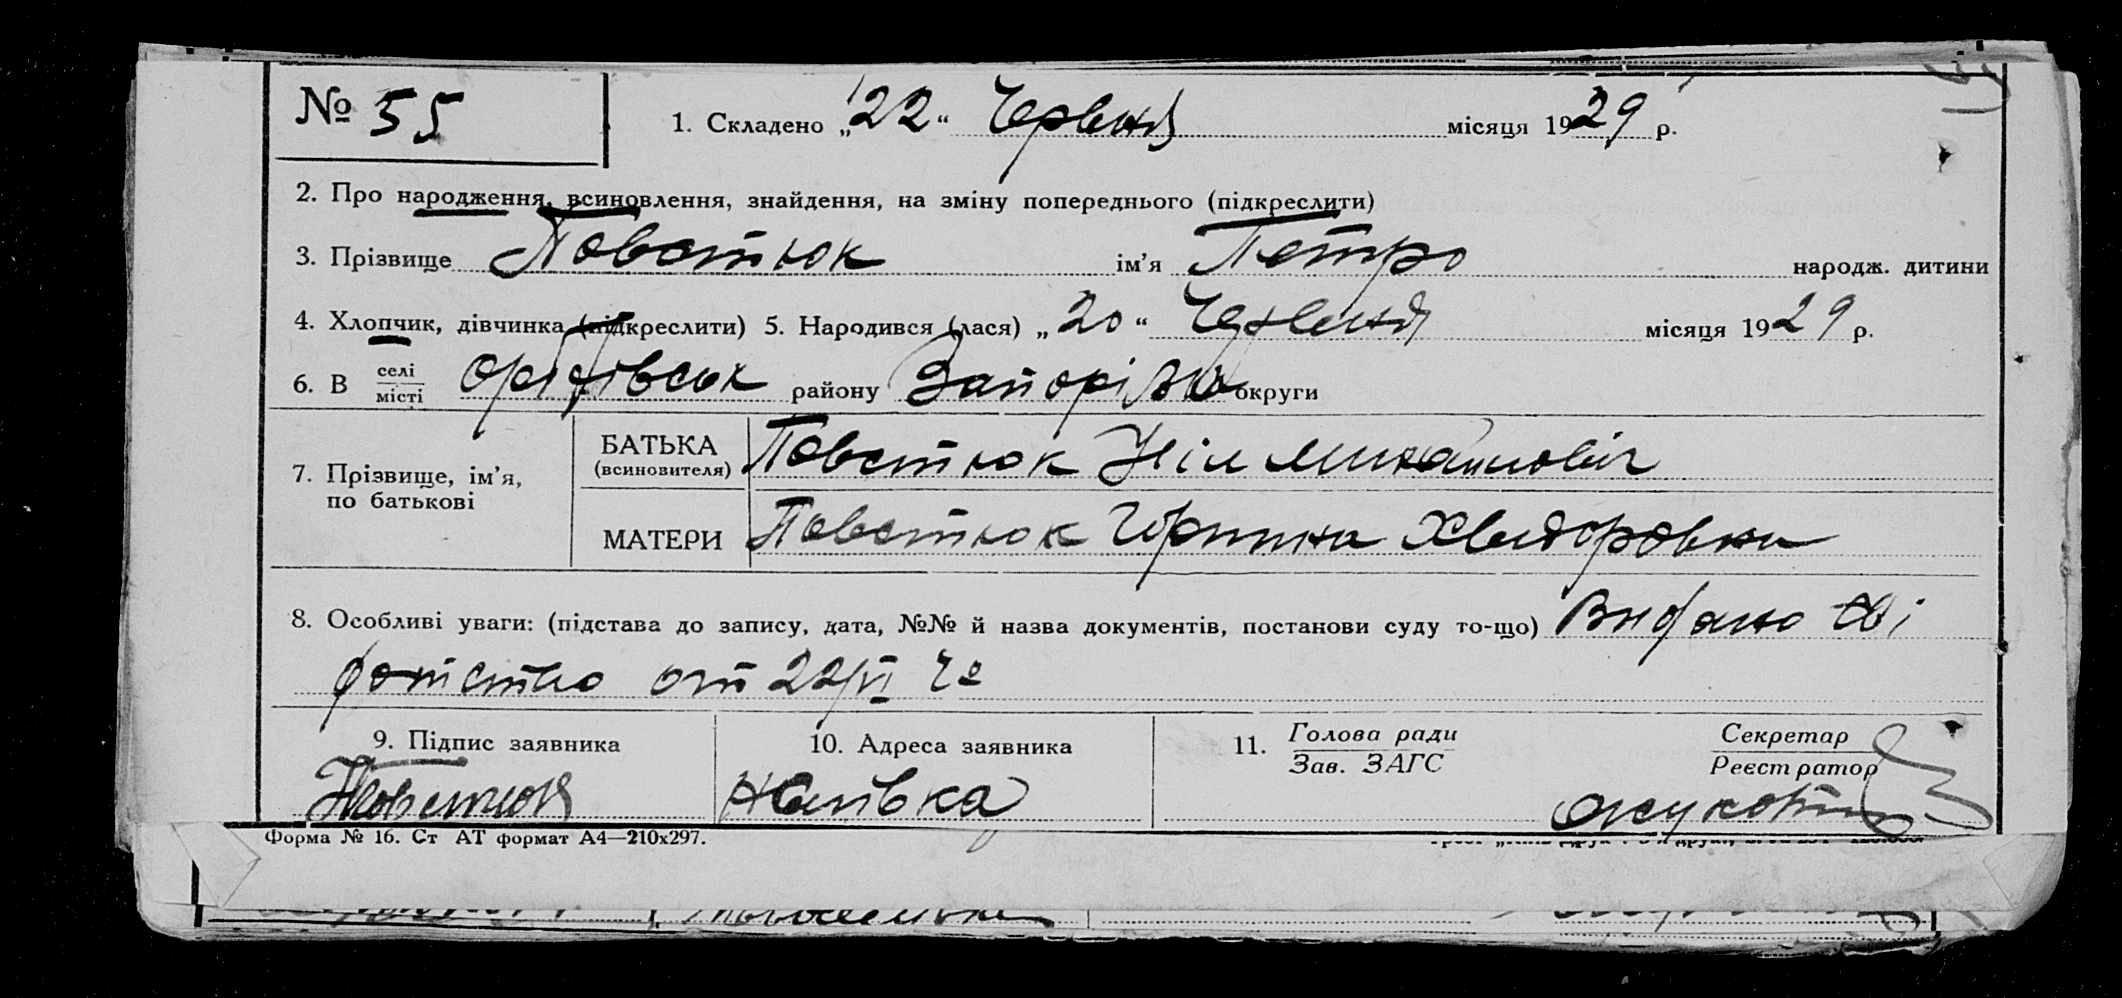 № 55
1. Складено „22“ Червня місяця 1929 р.
2. Про народження, всиновлення, знайдення, на зміну попереднього (підкреслити)
3. Прізвище Повстюк ім’я Петро народж. дитини
4. Хлопчик, дівчинка (підкреслити) 5. Народився (лася) „20“ Червня місяця 1929 р.
6. В селі місті Оріхівськ району Запоріжж округи
7. Прізвище, ім’я, по батькові
БАТЬКА (всиновителя) Повстюк Ніл Михайлович
МАТЕРИ Повстюк Хведоровна
8. Особливі уваги: (підстава до запису, дата, №№ й назва документів, постанови суду то-що) Видано сві
доптство от 22/VI
9. Підпис заявника
Повстюк
10. Адреса заявника
11. Голова ради
Зав. ЗАГС
Секретар
Реєстратор
Форма № 16. Ст АТ формат А4—210х297.